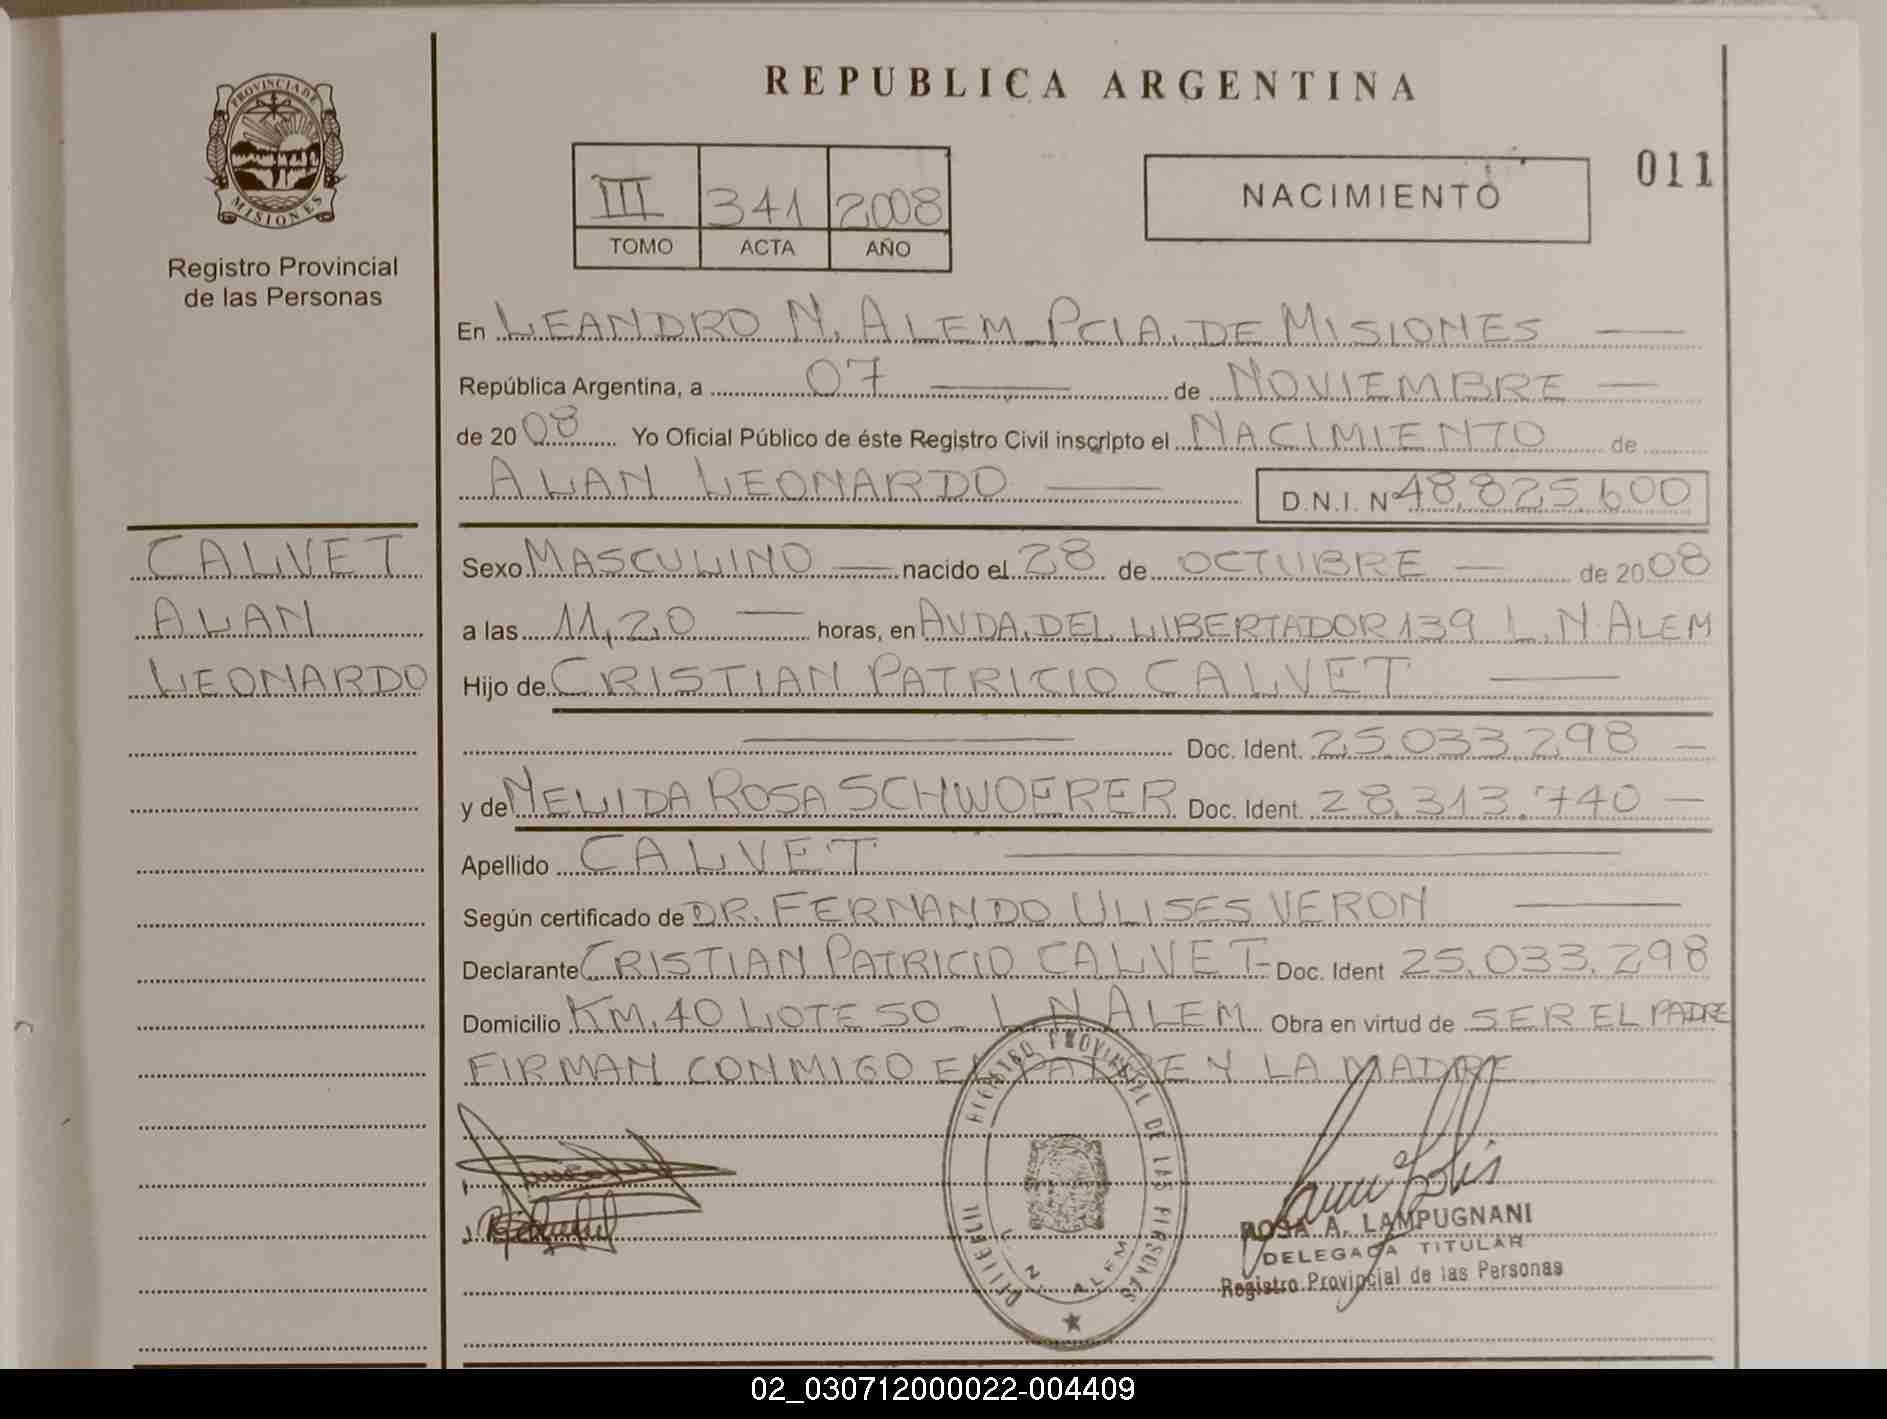 REPUBLICA ARGENTINA
PROVINCIA DE
MISIONES
Registro Provincial
de las Personas
III 341 2008
TOMO ACTA AÑO
NACIMIENTO
011
En LEANDRO N. ALEM PCIA. DE MISIONES
República Argentina, a 07 de NOVIEMBRE
de 2008 Yo Oficial Público de éste Registro Civil inscripto el NACIMIENTO de
ALAN LEONARDO D.N.I. Nº 48.825.600
CALVET
ALAN
LEONARDO
Sexo MASCULINO nacido el 28 de OCTUBRE de 2008
a las 11,20 horas, en AVDA. DEL LIBERTADOR 139 L.N. ALEM
Hijo de CRISTIAN PATRICIO CALVET
Doc. Ident. 25.033.298
y de NELIDA ROSA SCHWOERER Doc. Ident. 28.313.740
Apellido CALVET
Según certificado de DR. FERNANDO ULISES VERON
Declarante CRISTIAN PATRICIO CALVET- Doc. Ident 25.033.298
Domicilio KM. 40 LOTE 50 L N ALEM Obra en virtud de SER EL PADRE
FIRMAN CONMIGO EL PADRE Y LA MADRE
REGISTRO PROVINCIAL DE LAS PERSONAS
L. N. ALEM
ROSA A. LAMPUGNANI
DELEGADA TITULAR
Registro Provincial de las Personas
02_030712000022-004409